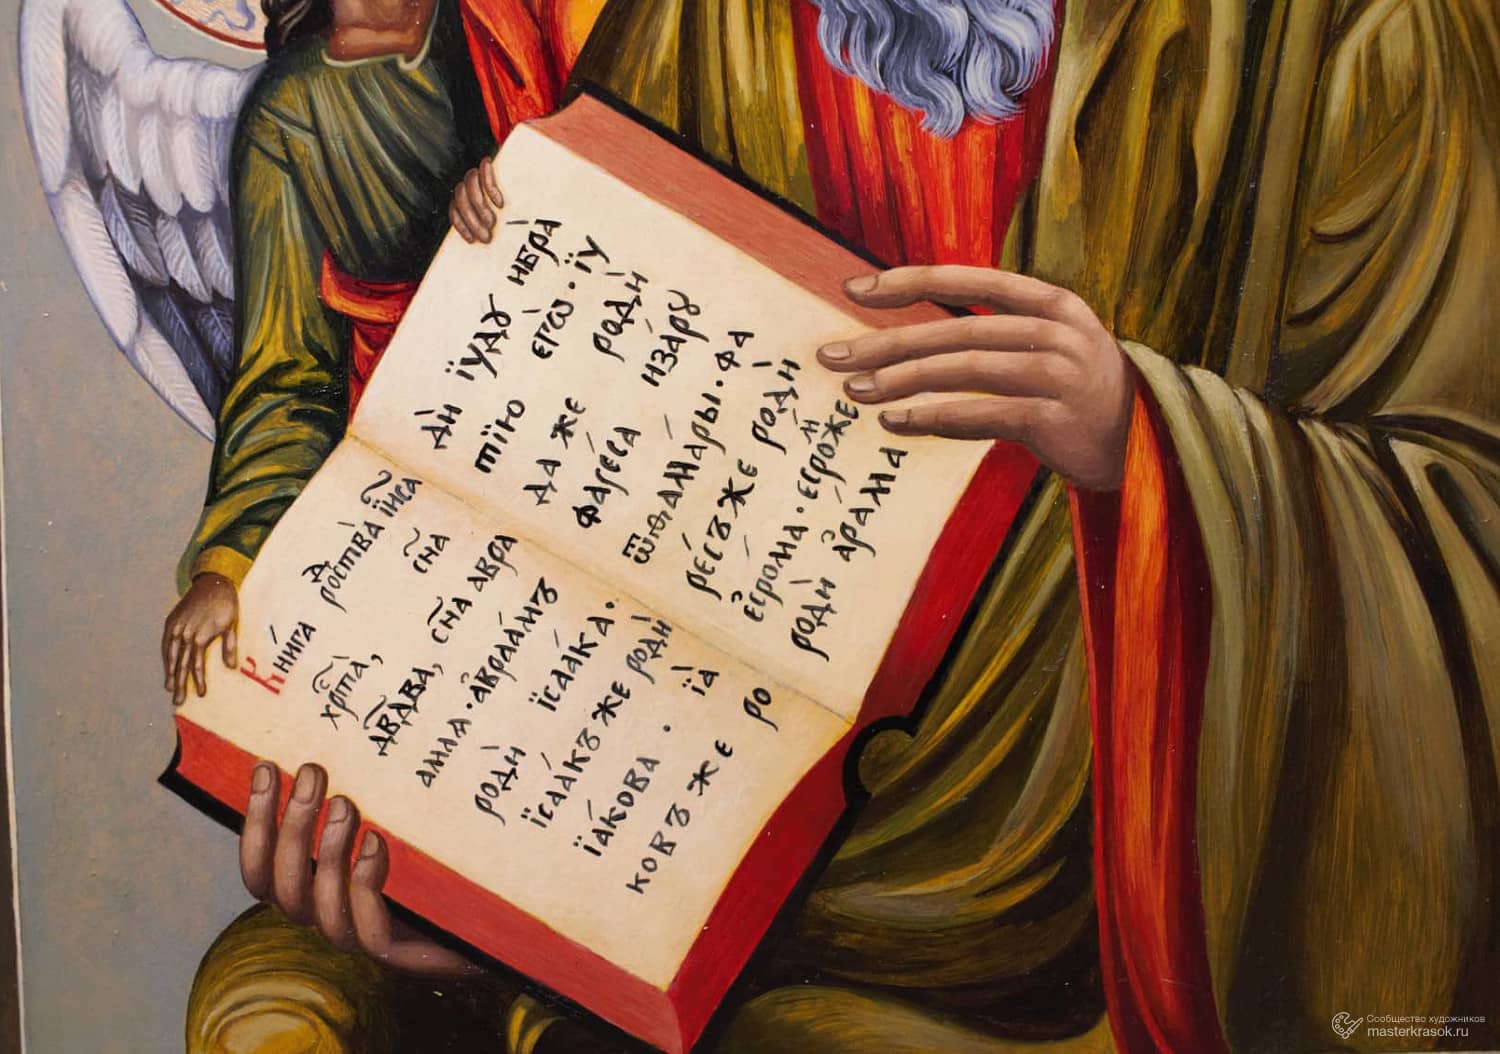 Кни́га рⷣоства̀ і҆и҃са
хрⷭ҇та̀, сн҃а
дв҃два, сн҃а авра
амля · а҆враа́мъ
родѝ ї҆саа́ка.
ї҆саа́къ же родѝ
ї҆а́кова . ї҆а̀
ковъ же ро
дѝ ї҆уду ибра̀
тїю єгѡ̀ · ї҆у
да же родѝ
фаре́са изару
ѿѳама́ры · фа
ре́съ же родѝ
е҆сро́ма · есро́мже
родѝ а҆ра́ма
Сообщество художников
masterkrasok.ru